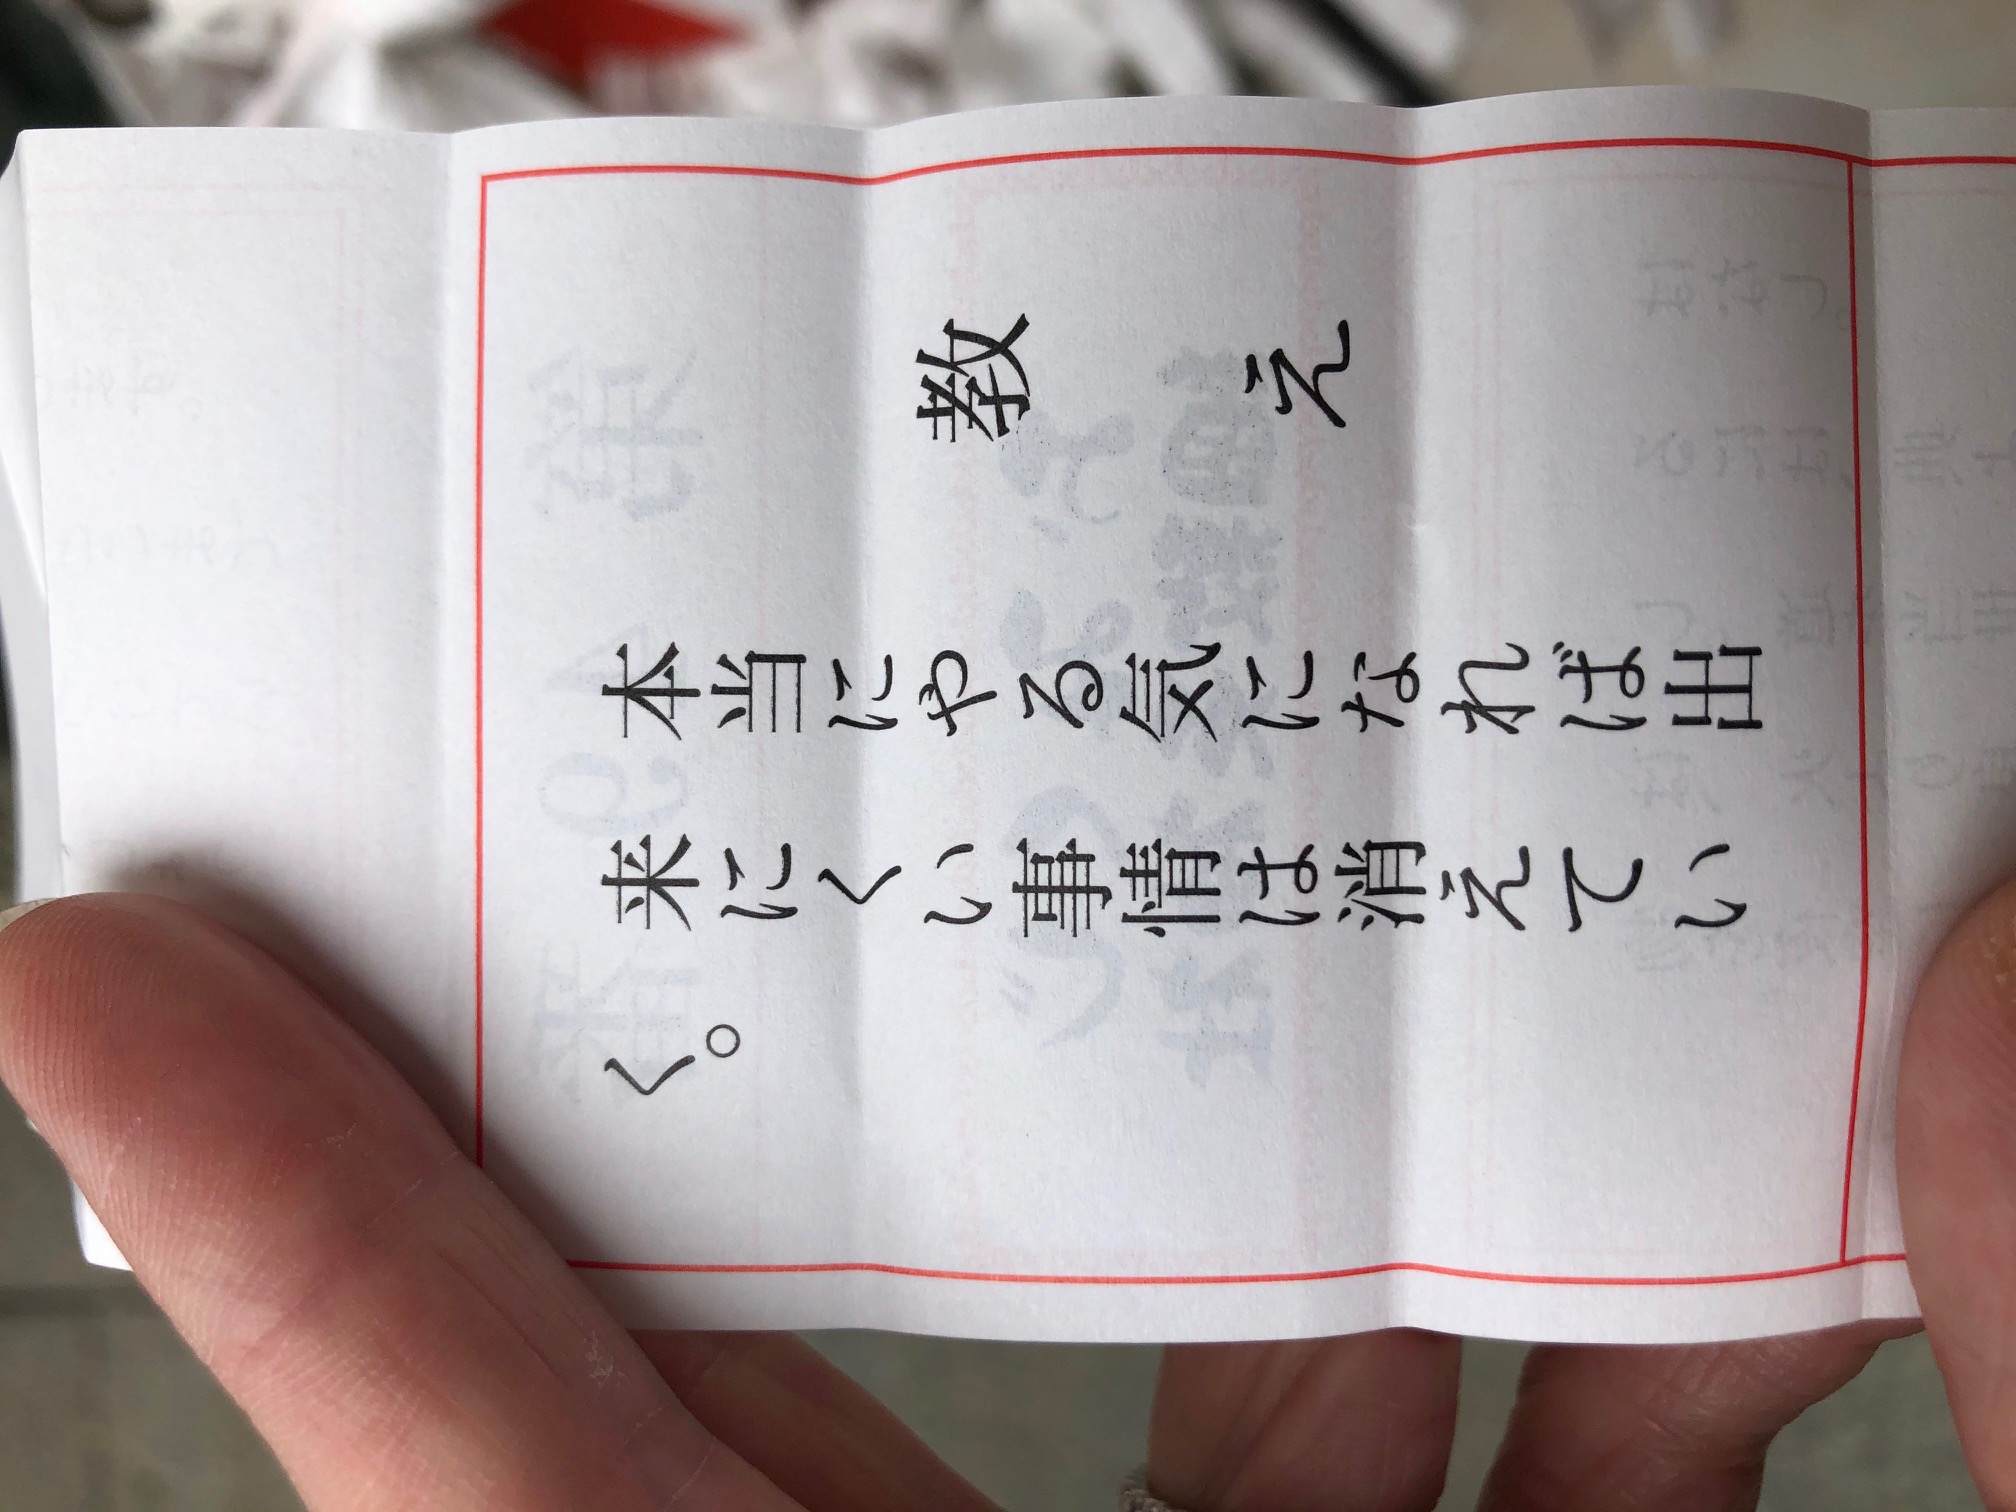 教え
本当にやる気になれば出
来にくい事情は消えてい
く。